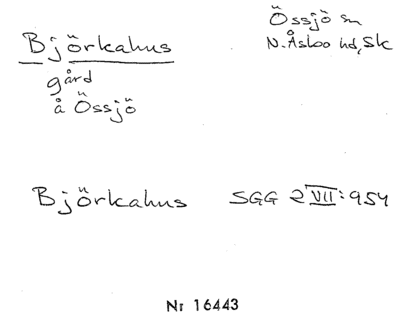 Björkahus
gård
å Össjö
Össjö sn
N. Åsbo hd, Sk
Björkahus SGG 2 VII: 954
Nr 16443